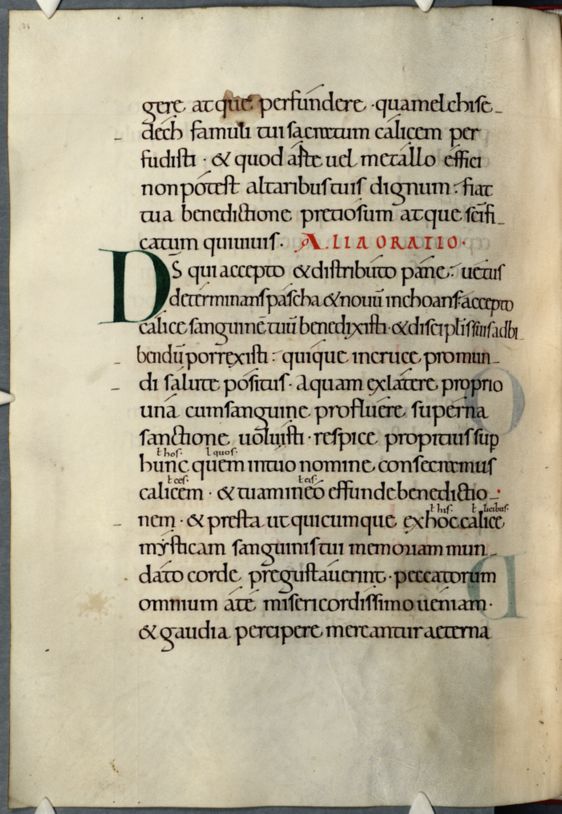 gere atque perfundere · quamelchise-
dech famuli tui sacratum calicem per
fudisti · & quod arte uel metallo effici
non potest altaribus tuis dignum · fiat
tua benedictione pretiosum atque scīfi-
catum qui uiuis · ALIA ORATIO ·
DS̄ qui accepto & distributo pane · uetus
determinans pascha & nouū inchoans · accepto
calice sanguinē tuū benedixisti · & discipłis tuis ad bi-
bendū porrexisti : quique in cruce pro mun-
di salute positus · aquam ex latere proprio
una cum sanguine profluere superna
sanctione uoluisti · respice propitius sup̄
ł hos · ł quos ·
hunc quem in tuo nomine consecramus
ł ces · ł eis ·
calicem · & tuam in eo effunde benedictio-
ł his · ł licibus ·
nem · & presta ut quicumque ex hoc calice
mysticam sanguinis tui memoriam mun-
dato corde pregustauerint · peccatorum
omnium a te misericordissimo ueniam ·
& gaudia percipere mereantur aeterna